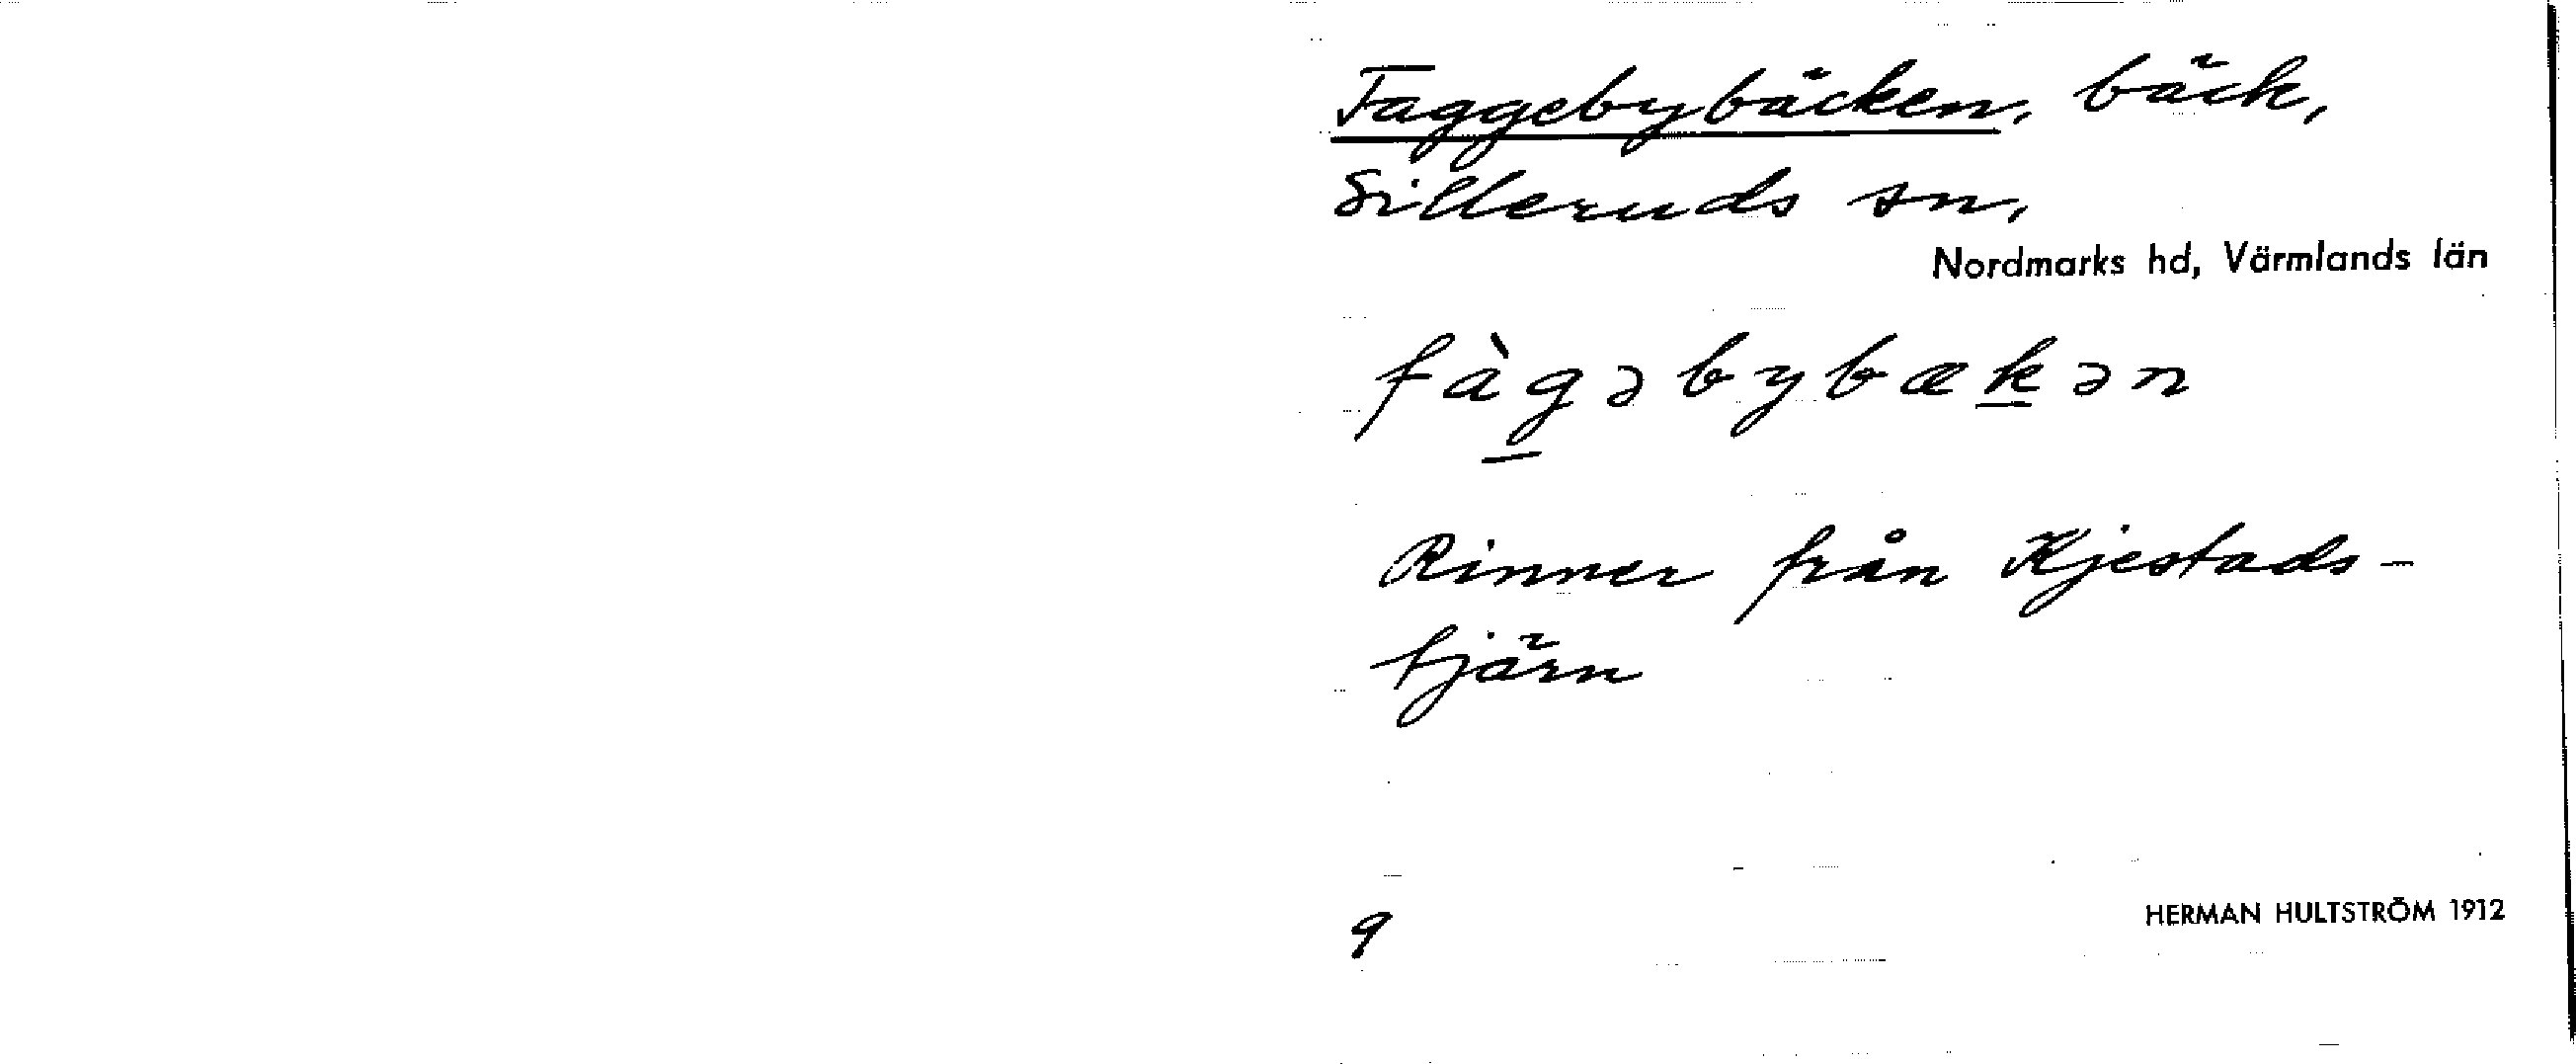 Faggebybäcken, bäck,
Silleruds sn,
Nordmarks hd, Värmlands län
fàg̲əbybæk̲ən
Rinner från Kjestads-
tjärn
9
HERMAN HULTSTRÖM 1912